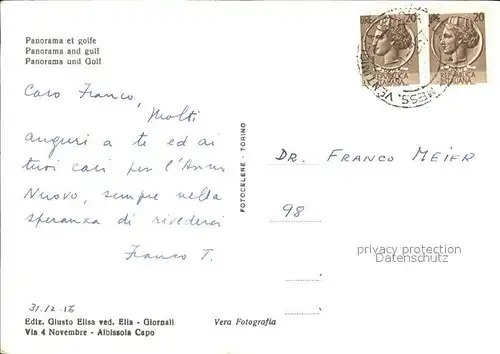 Panorama et golfe
Panorama and gulf
Panorama und Golf
LIRE 20
LIRE 20
REPUBBLICA
ITALIANA
REPUBBLICA
ITALIANA
MESS. VENTIMI
Caro Franco,
Molti
auguri a te ed ai
tuoi cari per l'Anno
Nuovo, sempre nella
speranza di rivederci
Franco T.
31.12.16
FOTOCELERE - TORINO
DR. FRANCO MEIER
98
privacy protection
Description
Ediz. Giusto Elisa ved. Elia - Giornali
Via 4 Novembre - Albissola Capo
Vera Fotografia